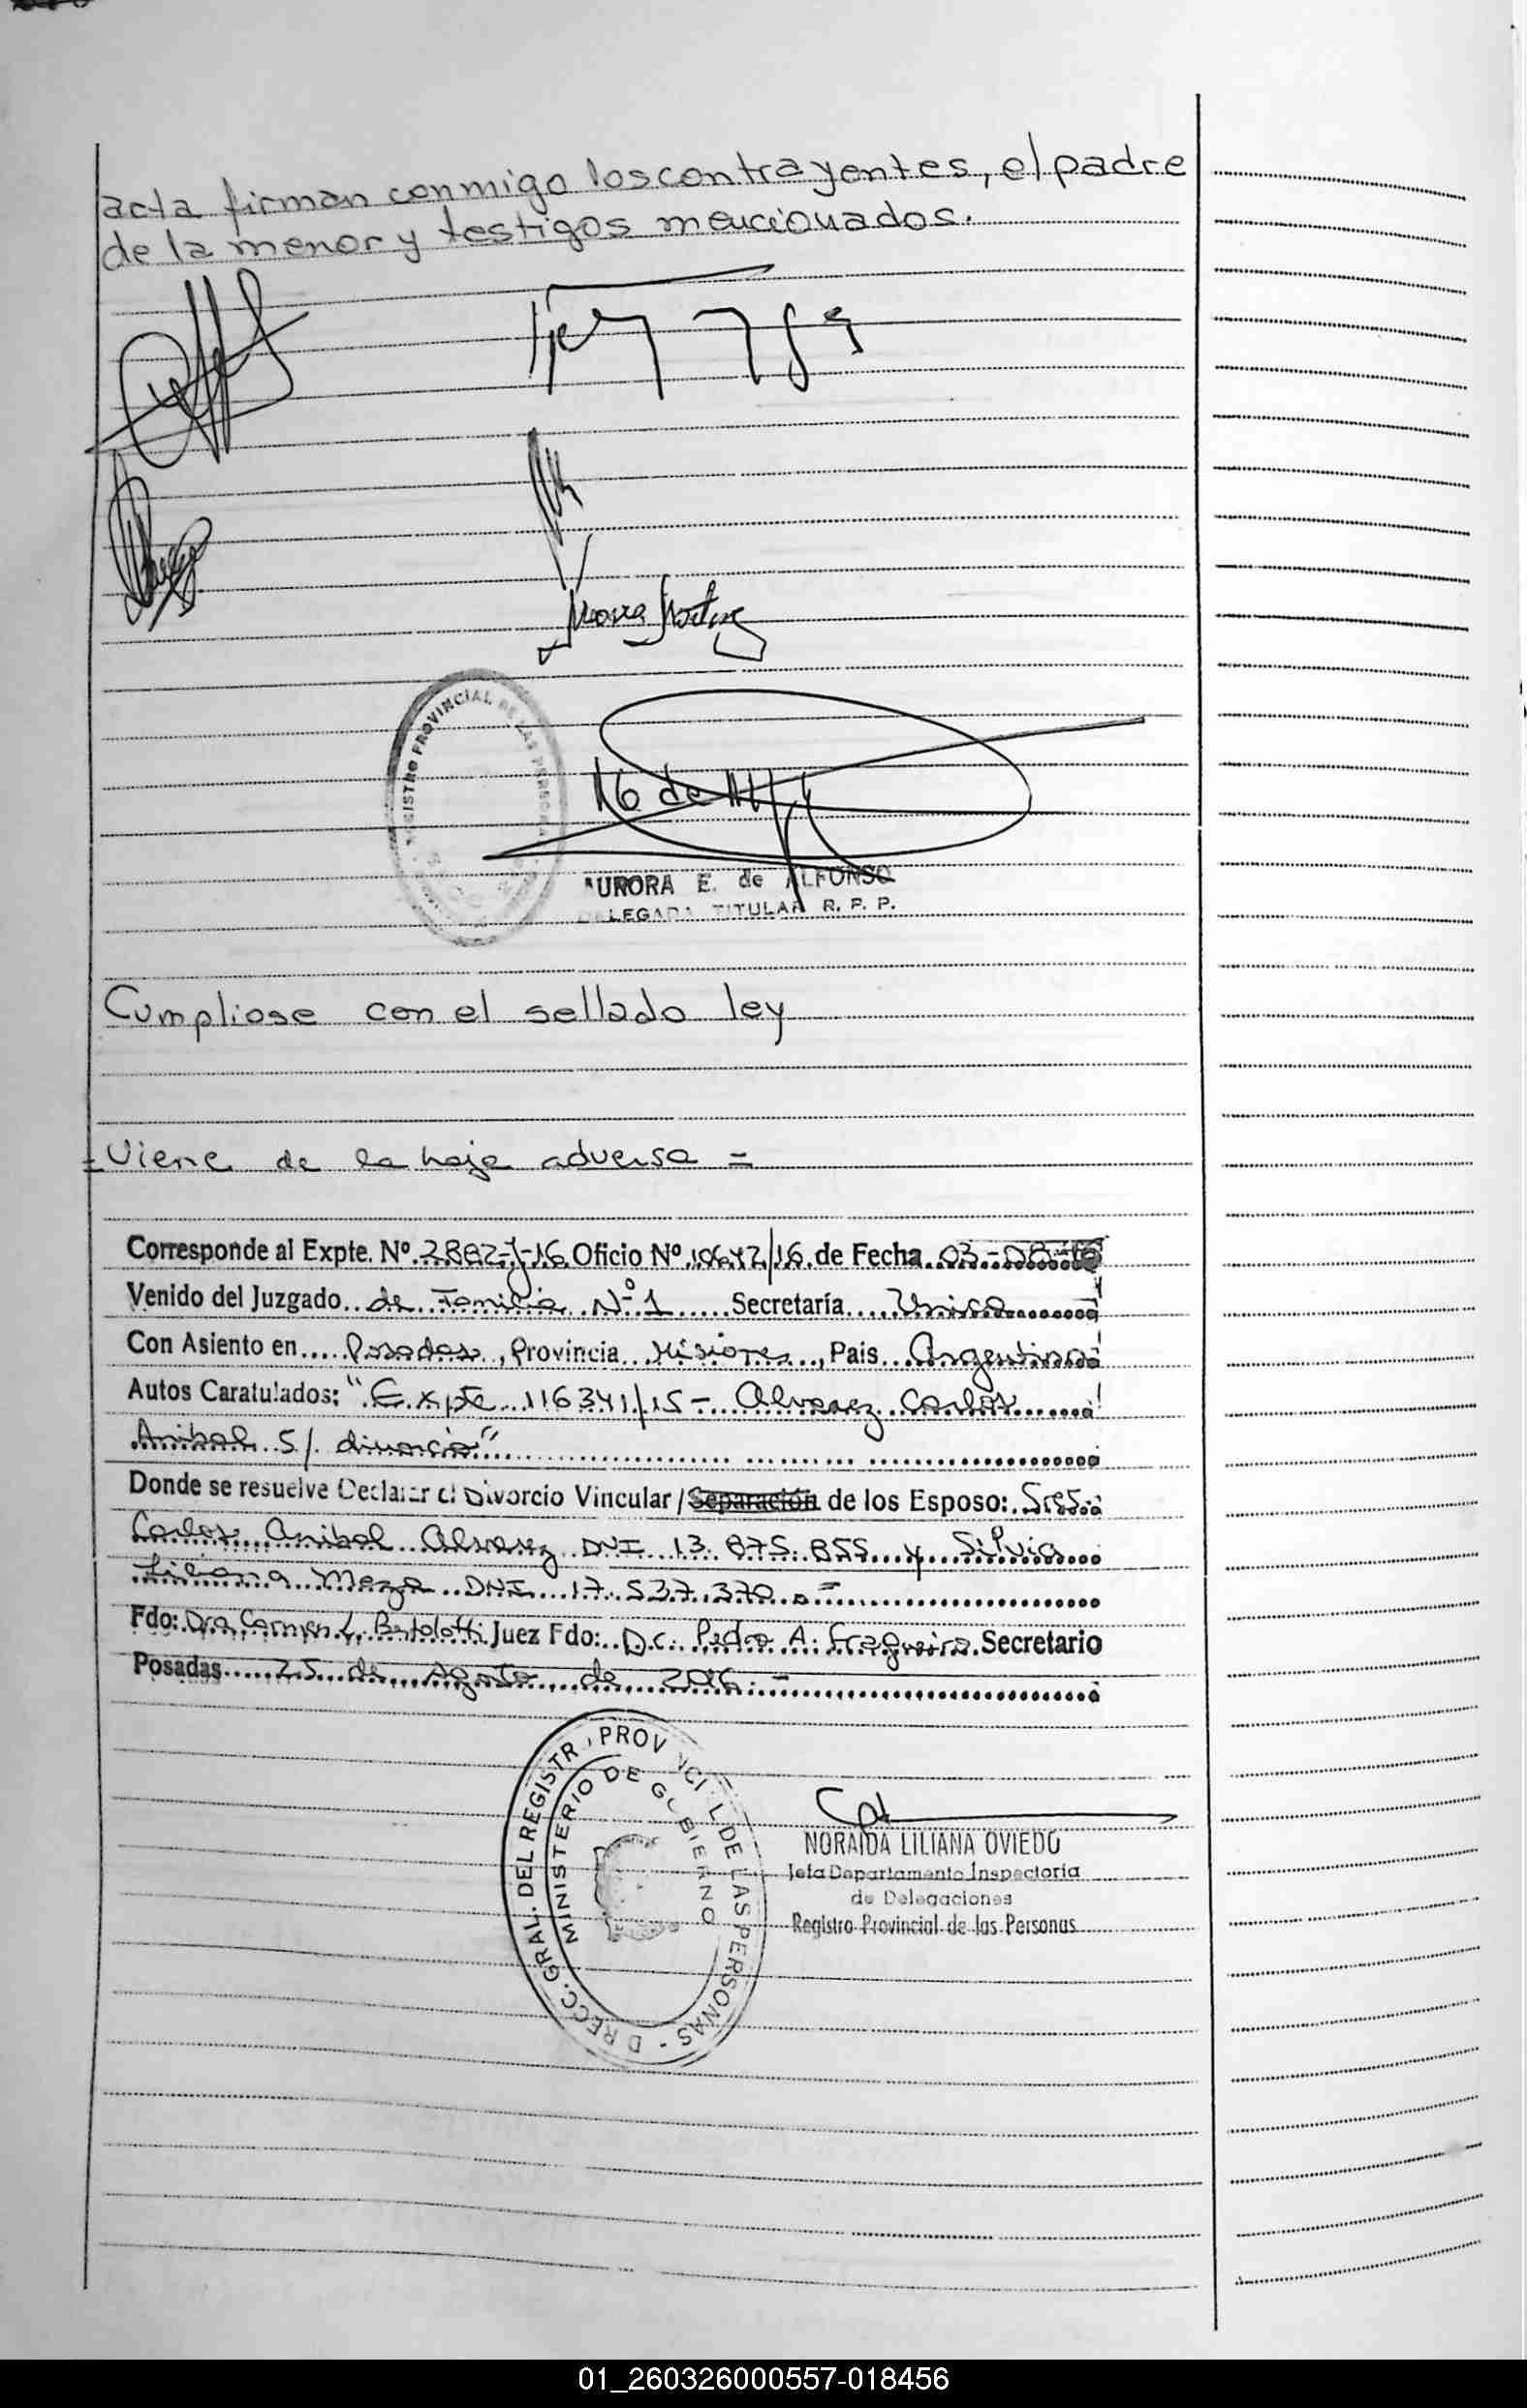 acta firman conmigo los contrayentes, el padre
de la menor y testigos mencionados.
REGISTRO PROVINCIAL DE LAS PERSONAS
16 de
AURORA E. de ALFONSO
DELEGADA TITULAR R. P. P.
Cumpliose con el sellado ley
=Viene de la hoja adversa =
Corresponde al Expte. Nº 2882-J-16 Oficio Nº 10642/16 de Fecha 03-08-16
Venido del Juzgado de Familia Nº 1 Secretaría Unica
Con Asiento en Posadas, Provincia Misiones, Pais Argentina
Autos Caratulados: "Expte 116341/15 - Alvarez Carlos
Anibal S/ divorcio"
Donde se resuelve Declarar el Divorcio Vincular / Separación de los Esposo: Sres.
Carlos Anibal Alvarez DNI 13.875.855 y Silvia
Liliana Meza DNI 17.537.370.=
Fdo: Dra Carmen L. Bertolotti Juez Fdo: D.c. Pedro A. Fragueiro Secretario
Posadas 25 de Agosto de 2016.-
DIRECC. GRAL. DEL REGISTRO PROVINCIAL DE LAS PERSONAS -
MINISTERIO DE GOBIERNO
NORAIDA LILIANA OVIEDO
Jefa Departamento Inspectoria
de Delegaciones
Registro Provincial de las Personas
01_260326000557-018456